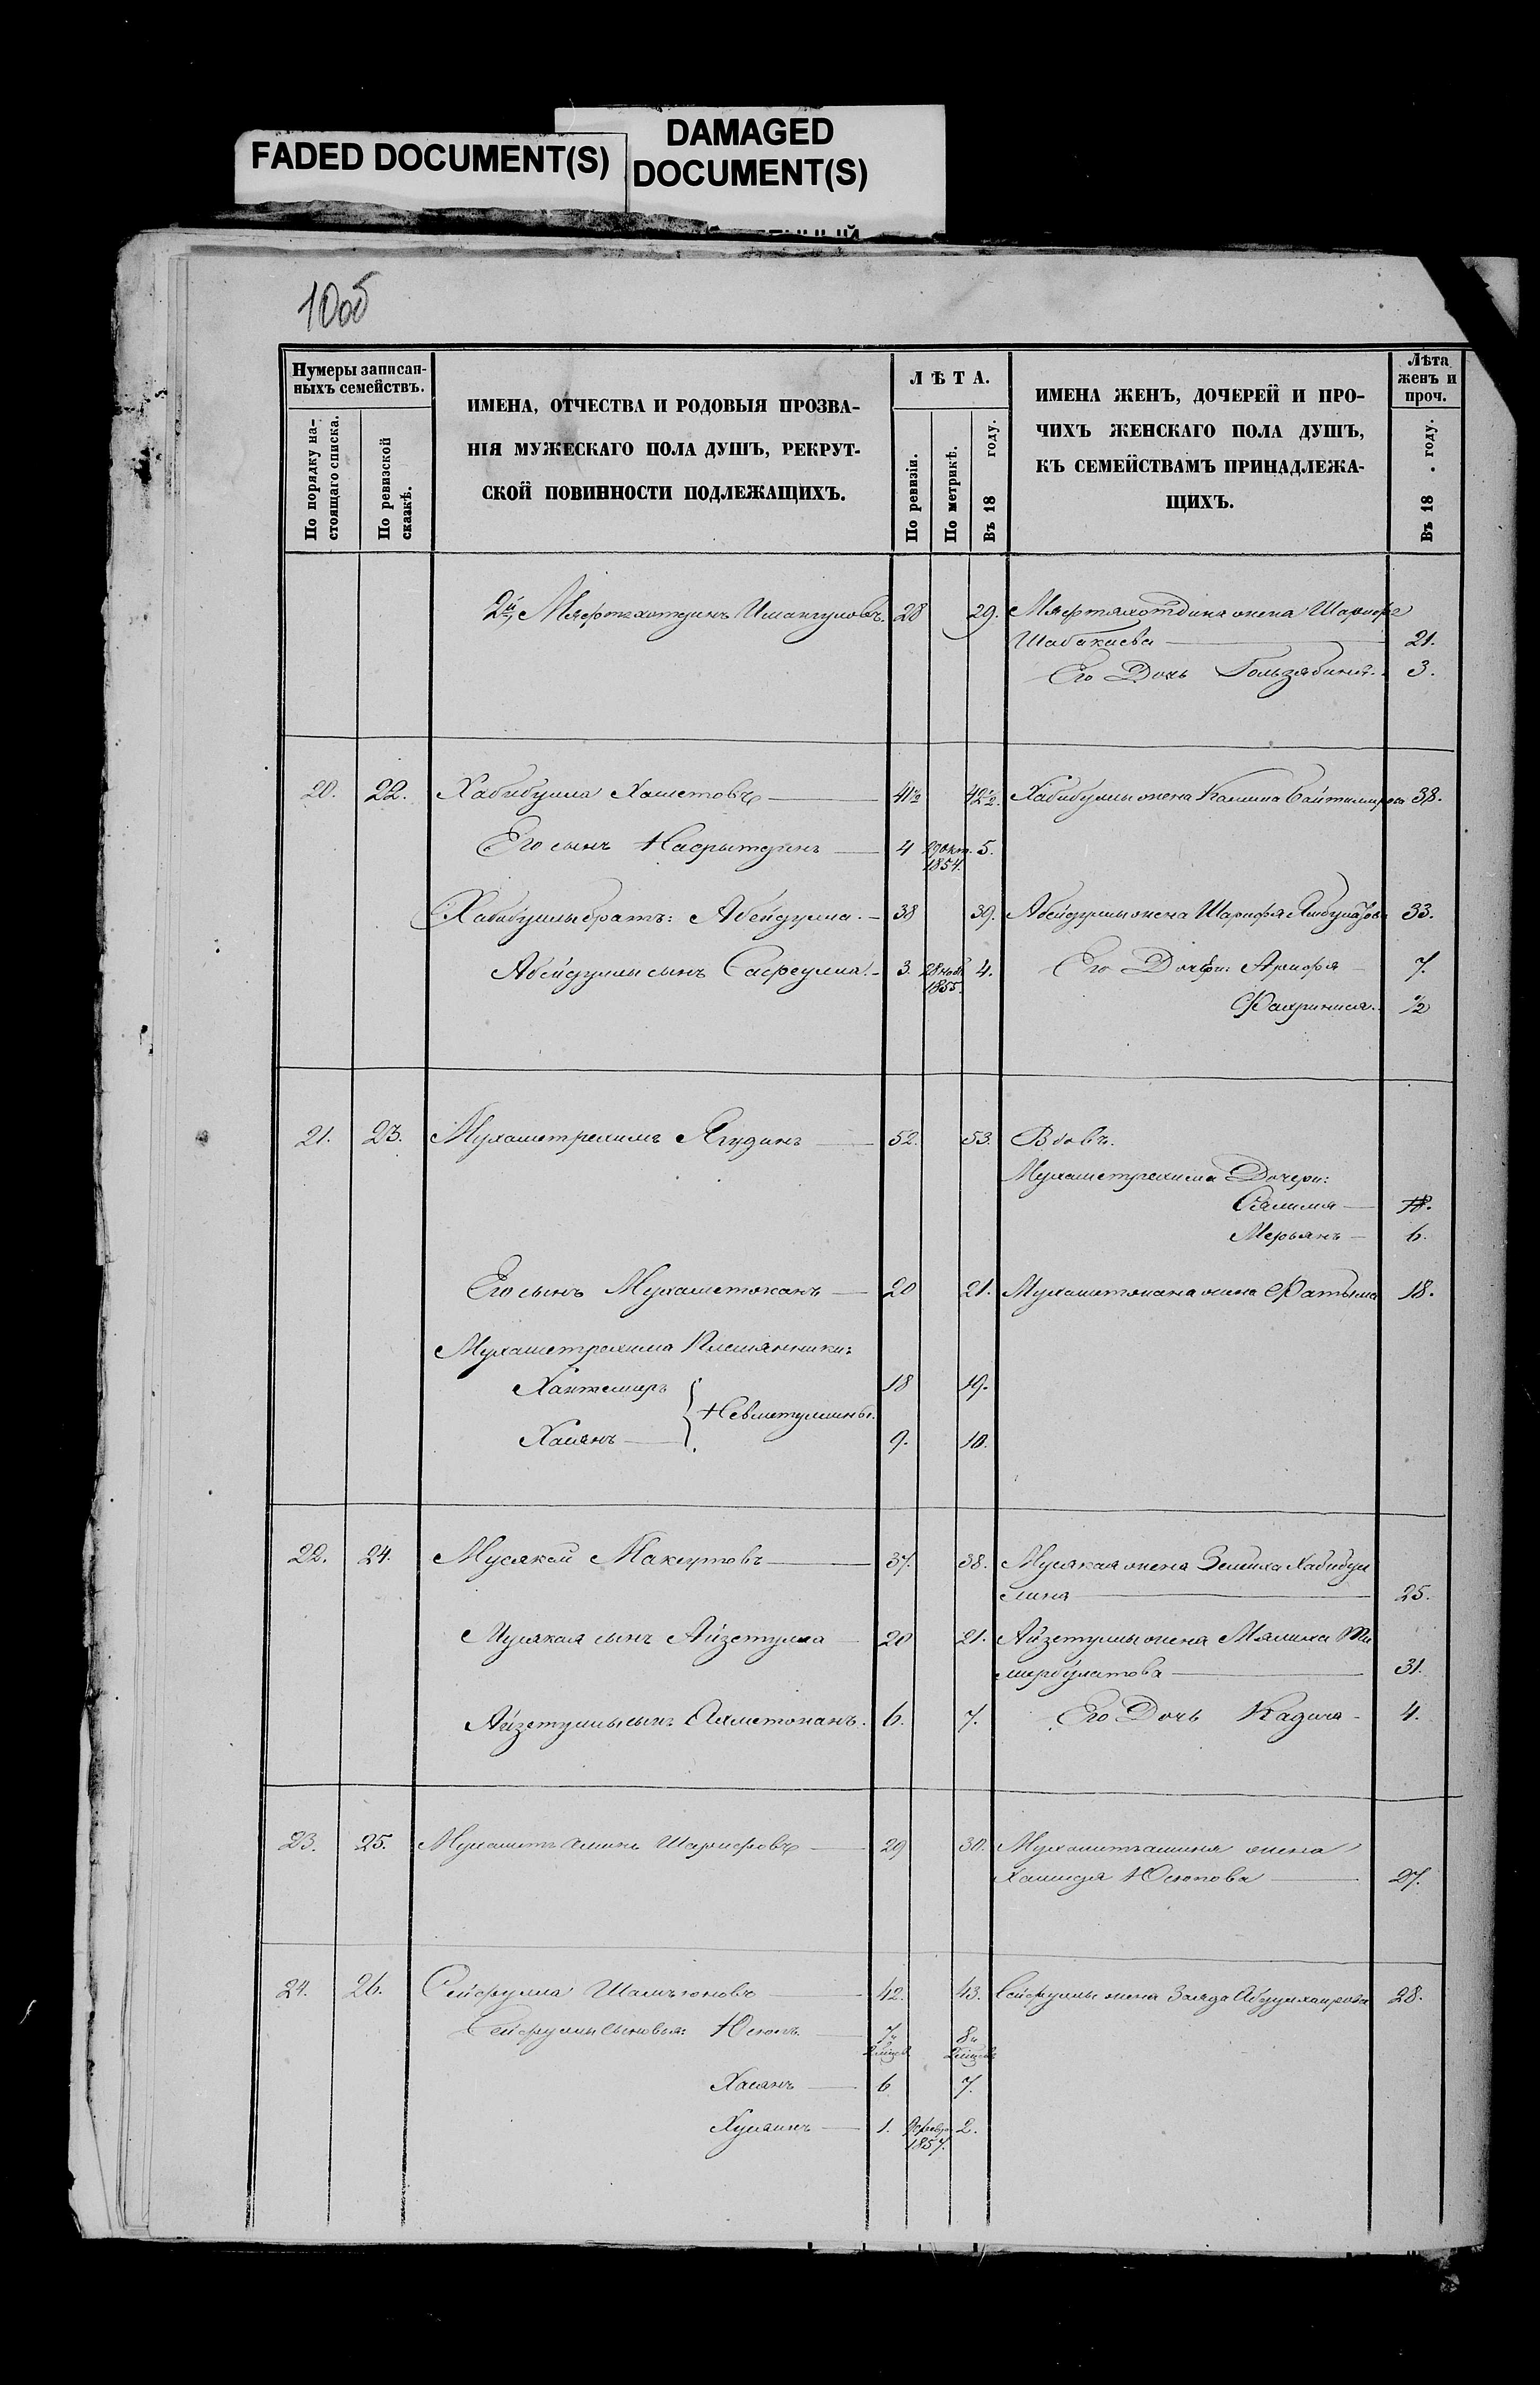 FADED DOCUMENT(S)
DAMAGED
DOCUMENT(S)
10об
Нумеры записан-
ныхъ семействъ.
По порядку на-
стоящаго списка.
По ревизской
сказкѣ.
ИМЕНА, ОТЧЕСТВА И РОДОВЫЯ ПРОЗВА-
НІЯ МУЖЕСКАГО ПОЛА ДУШЪ, РЕКРУТ-
СКОЙ ПОВИННОСТИ ПОДЛЕЖАЩИХЪ.
ЛѢТА.
По ревизіи.
По метрикѣ.
Въ 18 году.
ИМЕНА ЖЕНЪ, ДОЧЕРЕЙ И ПРО-
ЧИХЪ ЖЕНСКАГО ПОЛА ДУШЪ,
КЪ СЕМЕЙСТВАМЪ ПРИНАДЛЕЖА-
ЩИХЪ.
Лѣта
женъ и
проч.
Въ 18 . году.
2й, Мяфтахотдинъ Имангуловъ. 28 29. Мяфтяхотдина жена Шарифа
Шабакаева 21.
Его Дочь Гользябиня. 3.
20. 22. Хабибулла Хаметовъ 41½ 42½. Хабибуллы жена Камила Байтимирова 38.
Его сынъ Насрытдинъ 4 29 окт. 5.
1854.
Хабибуллы братъ: Абейдулла. 38 39. Абейдуллы жена Шарифа 33.
Абейдуллы сынъ Сафеулла. 3. 28 нояб. 4. Его Дочери: Арифя 7.
1855.
Фахриниса. ½
21. 23. Мухаметрахимъ Ягудинъ 52. 53. Вдовъ.
Мухаметрахима Дочери:
Сялимя 18.
Мерьянъ 6.
Его сынъ Мухаметжанъ 20 21. Мухаметжана жена Фатыма 18.
Мухаметрахима Племянники:
Хантемиръ 18 19.
Невметуллины.
Хасянъ 9. 10.
22. 24. Мусякай Максутовъ 37. 38. Мусякая жена Зелиха Хабибул
лина 25.
Мусякая сынъ Айзетулла 20 21. Айзетуллы жена Мялика Ти
мербулатова 31.
Айзетуллы сынъ Ахметжанъ. 6. 7. Его Дочь Кадича 4.
23. 25. Мухаметъ Аминь Шарифовъ 29 30. Мухаметъаминя жена
Хамидя Юсюпова 27.
24. 26. Сейфулла 42. 43. Сейфуллы жена Заида 28.
Сейфуллы сыновья: Юсюпъ 7 8
Хасянъ 6 7.
Хусяинъ 1. 2.
1857.